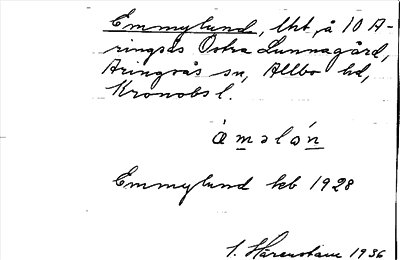 Emmylund, lht å 10 A-
ringsås Östra Lunnagård,
Aringsås sn, Allbo hd,
Kronobs l.
àməlón
Emmylund kb 1928
1936